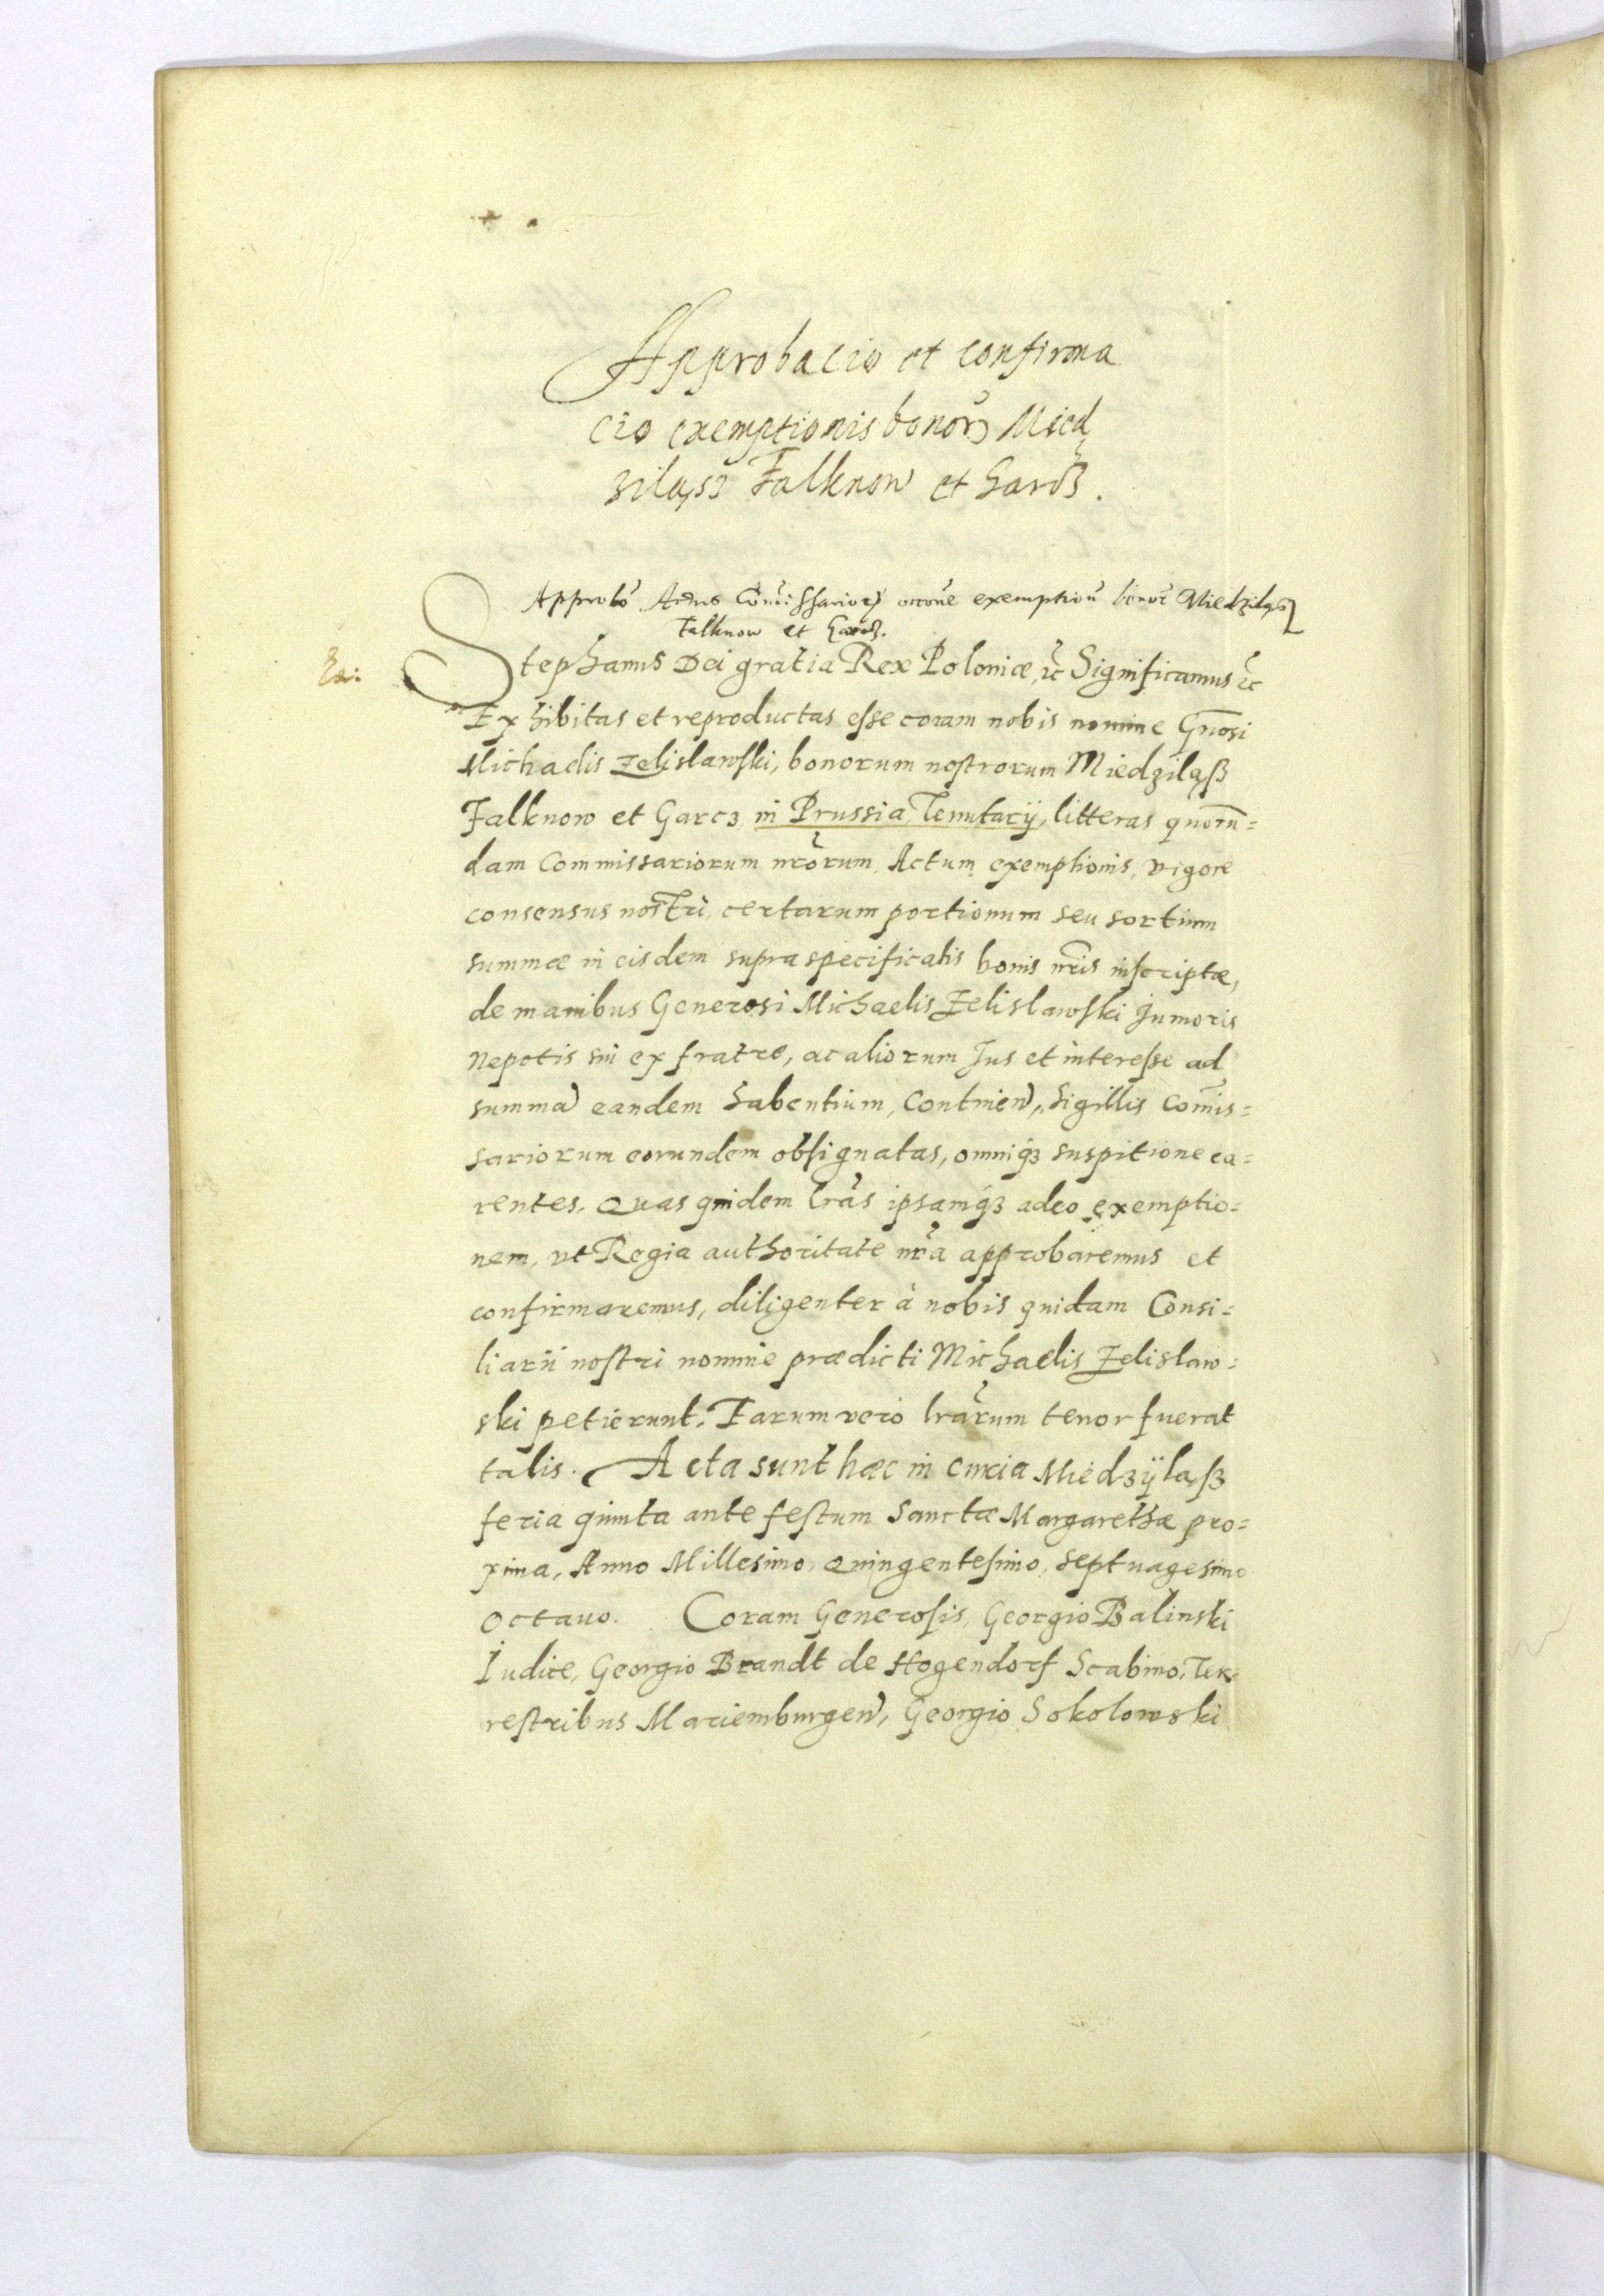 Approbacio et confirma
cio exemptionis bonoꝝ Mied
ziląsz Falknow et Garcz.
Approbõ Actus Com̃issarioꝝ oc̃one exemptioñ bonoꝝ Miedziląsz
Falknow et Garcz.
Stephanus Dei gratia Rex Poloniæ, ꝛc̃ Significamus ꝛc̃
Exhibitas et reproductas esse coram nobis nomine Gn̄osi
Michaelis Zelislawski, bonorum nostrorum Miedziląsz
Falknow et Garcz, in Prussia Tenutarij, litteras quorū=
dam Commissariorum nr̃orum, Actum exemptionis, vigore
consensus nostri, certarum portionum seu sortium
summæ in eisdem supraspecificatis bonis nr̃is inscriptæ,
de manibus Generosi Michaelis Zelislawski Junioris
Nepotis sui ex fratre, ac aliorum Jus et interesse ad
summã eandem habentium, Continen̄, sigillis Com̃is=
sariorum eorundem obsignatas, omniq́ꝫ suspitione ca=
rentes, Quas quidem l̃ras ipsamq́ꝫ adeo exemptio=
nem, vt Regia authoritate nr̃a approbaremus et
confirmaremus, diligenter à nobis quidam Consi=
liarii nostri nomine prædicti Michaelis Zelislaw=
ski petierunt. Earum vero l̃rarum tenor fuerat
talis. Acta sunt hæc in curia Miedzÿląsz
feria quinta ante festum Sanctæ Margarethæ pro=
xima, Anno Millesimo, Quingentesimo, septuagesimo
octauo. Coram Generosis, Georgio Balinski
Iudice, Georgio Brandt de Hogendorf Scabino, Ter=
restribus Mariemburgen̄, Georgio Sokolowski